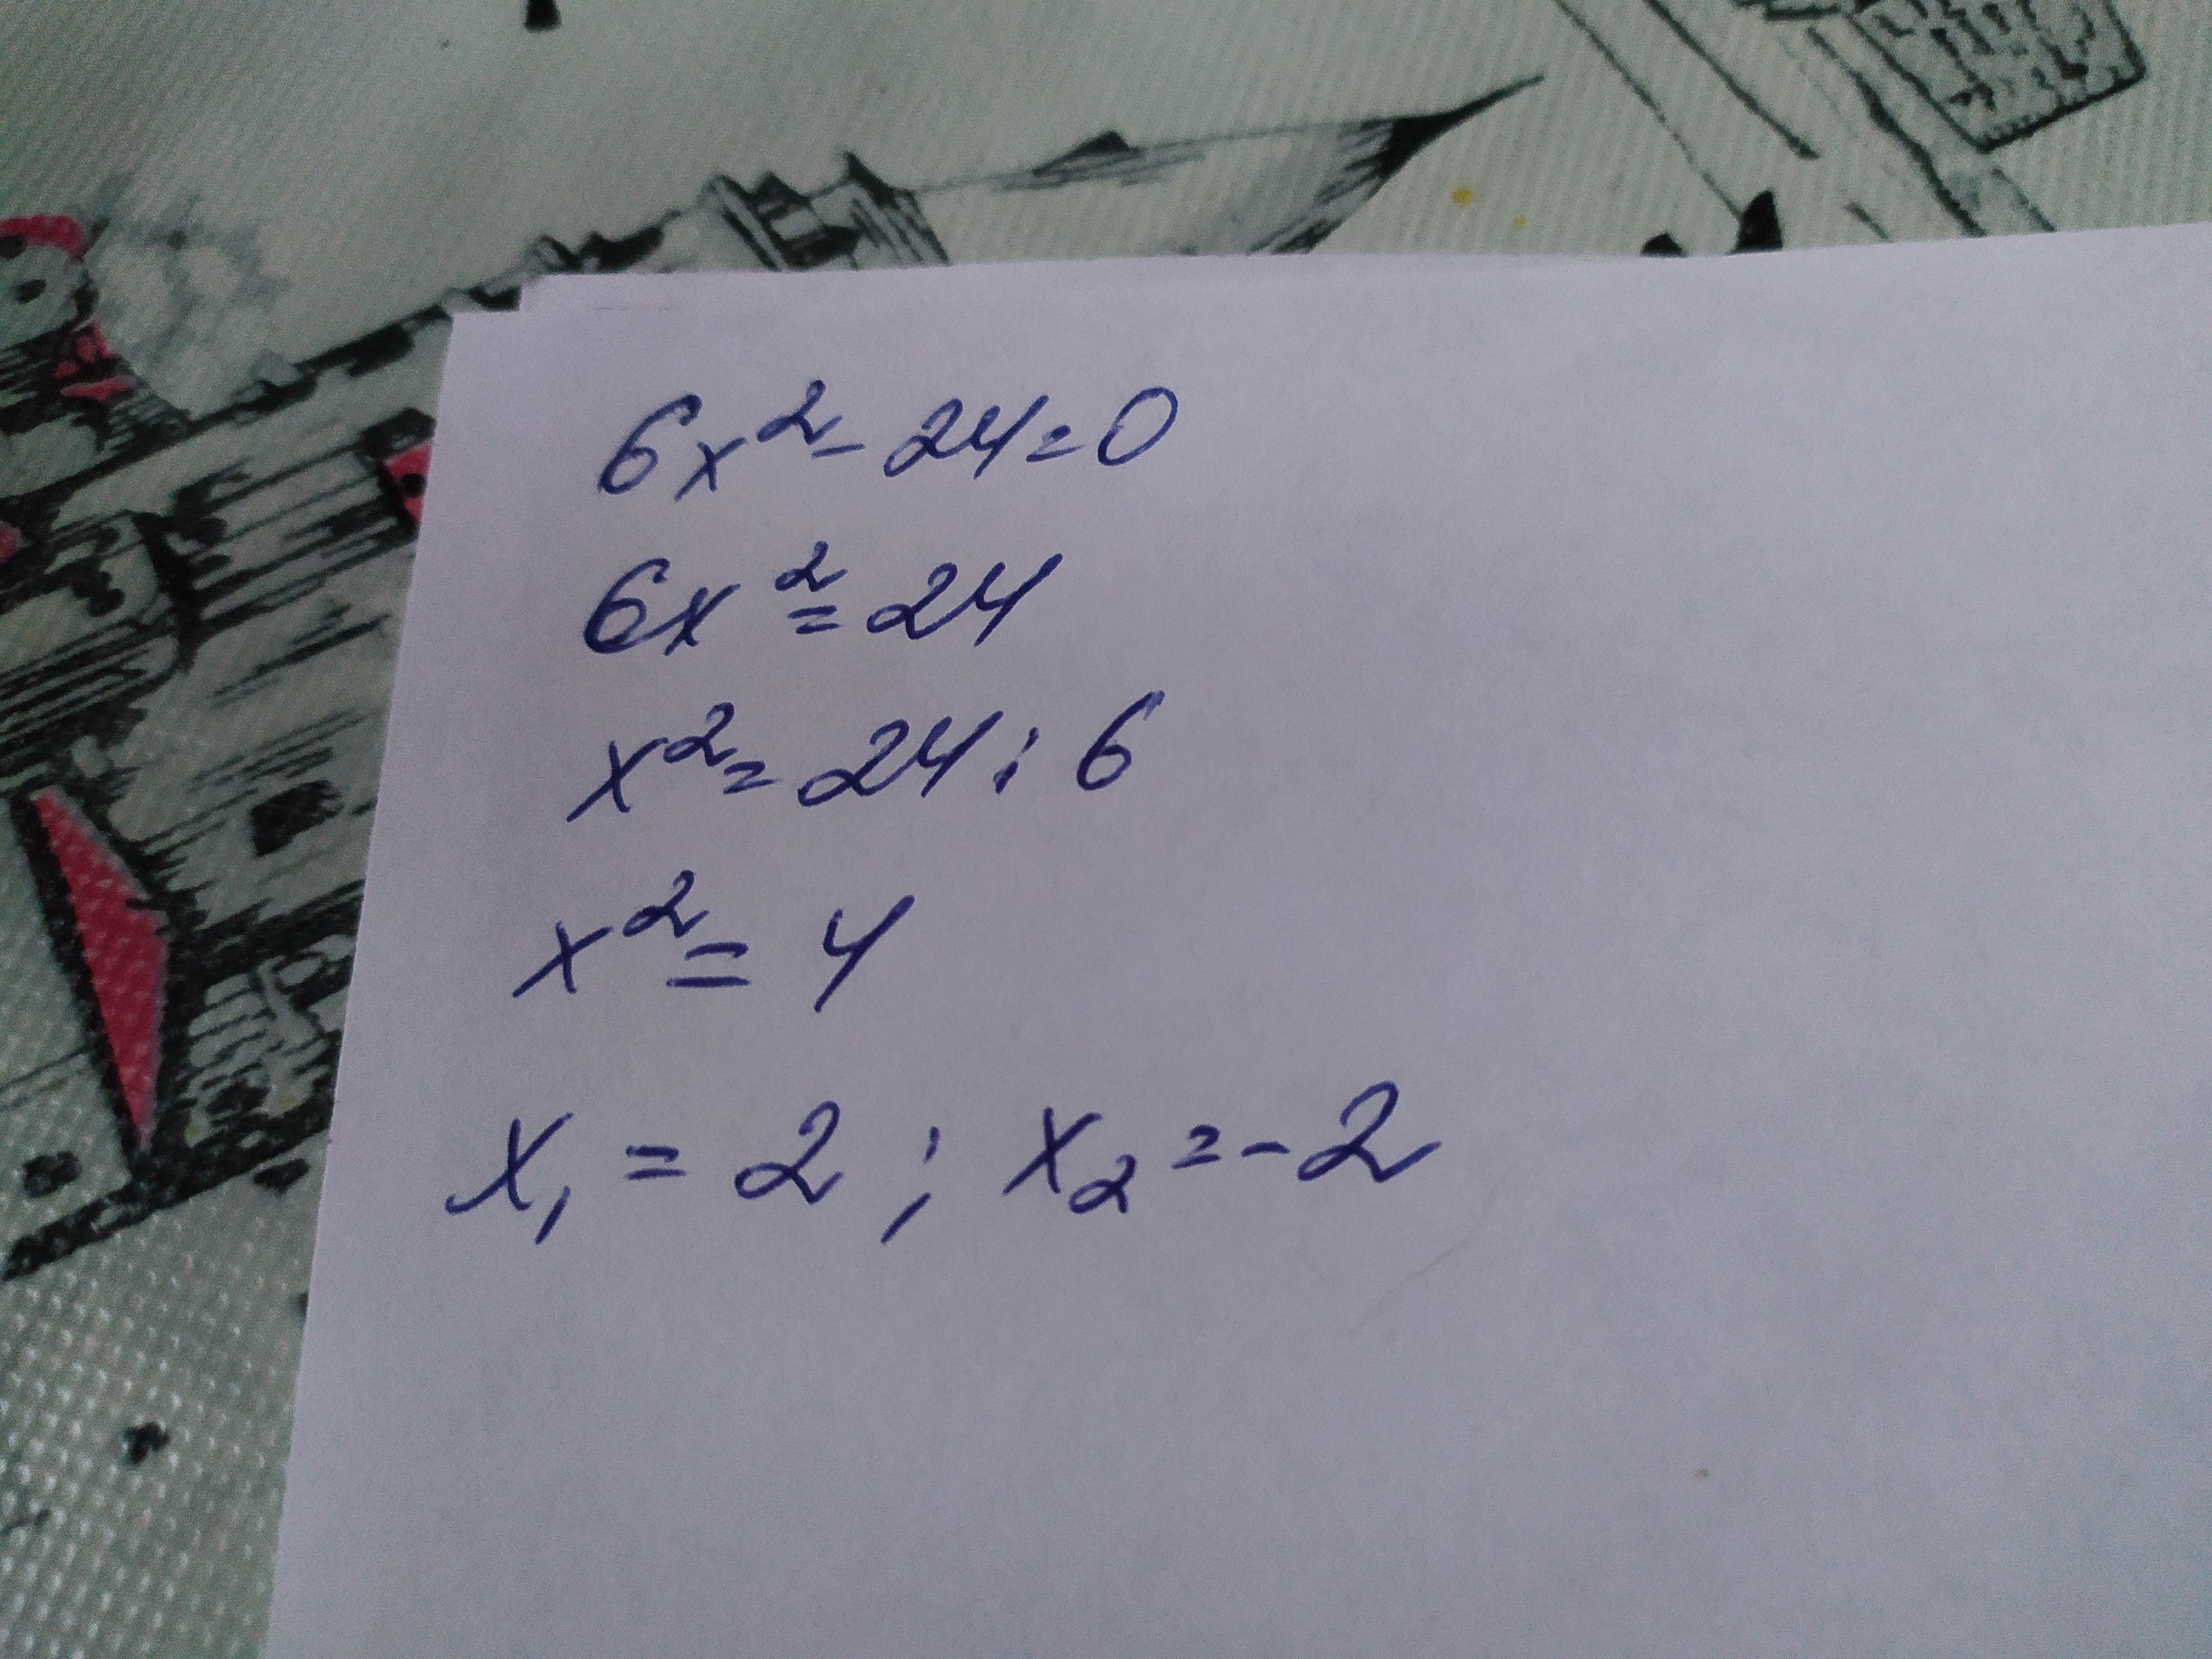 6x² - 24 = 0
6x² = 24
x² = 24 : 6
x² = 4
x₁ = 2 ; x₂ = -2